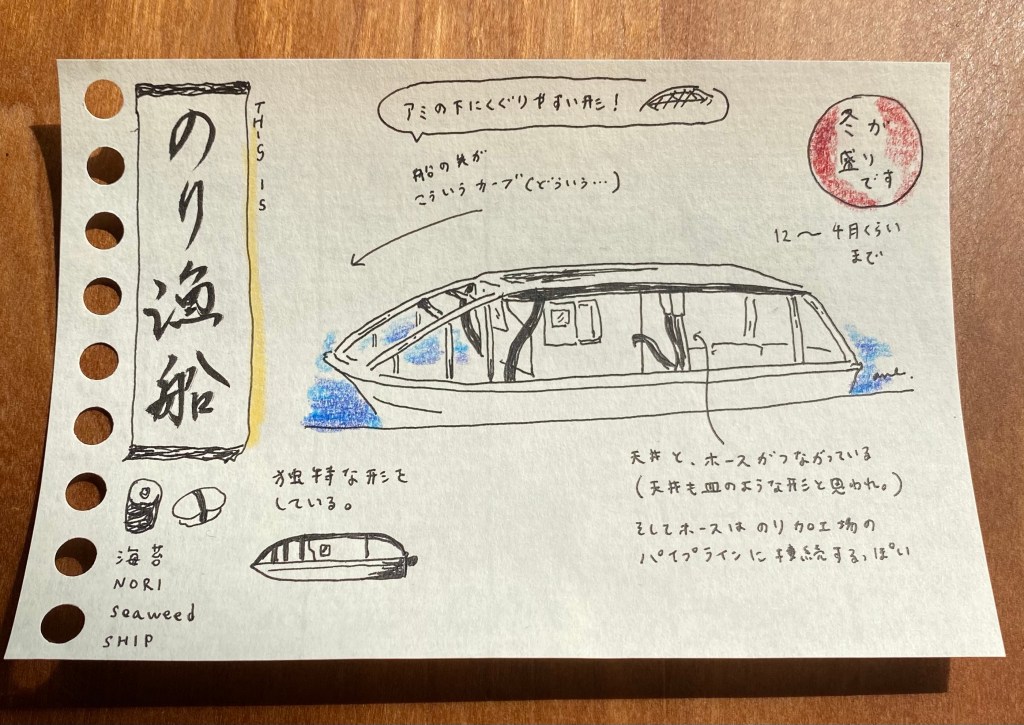 のり漁船
THIS IS
アミの下にくぐりやすい形！
船の先が
こういうカーブ(どういう…)
冬が
盛りです
12〜4月くらい
まで
天井と、ホースがつながっている
(天井も皿のような形と思われ。)
そしてホースはのり加工場の
パイプラインに接続するっぽい
独特な形を
している。
海苔
NORI
seaweed
SHIP